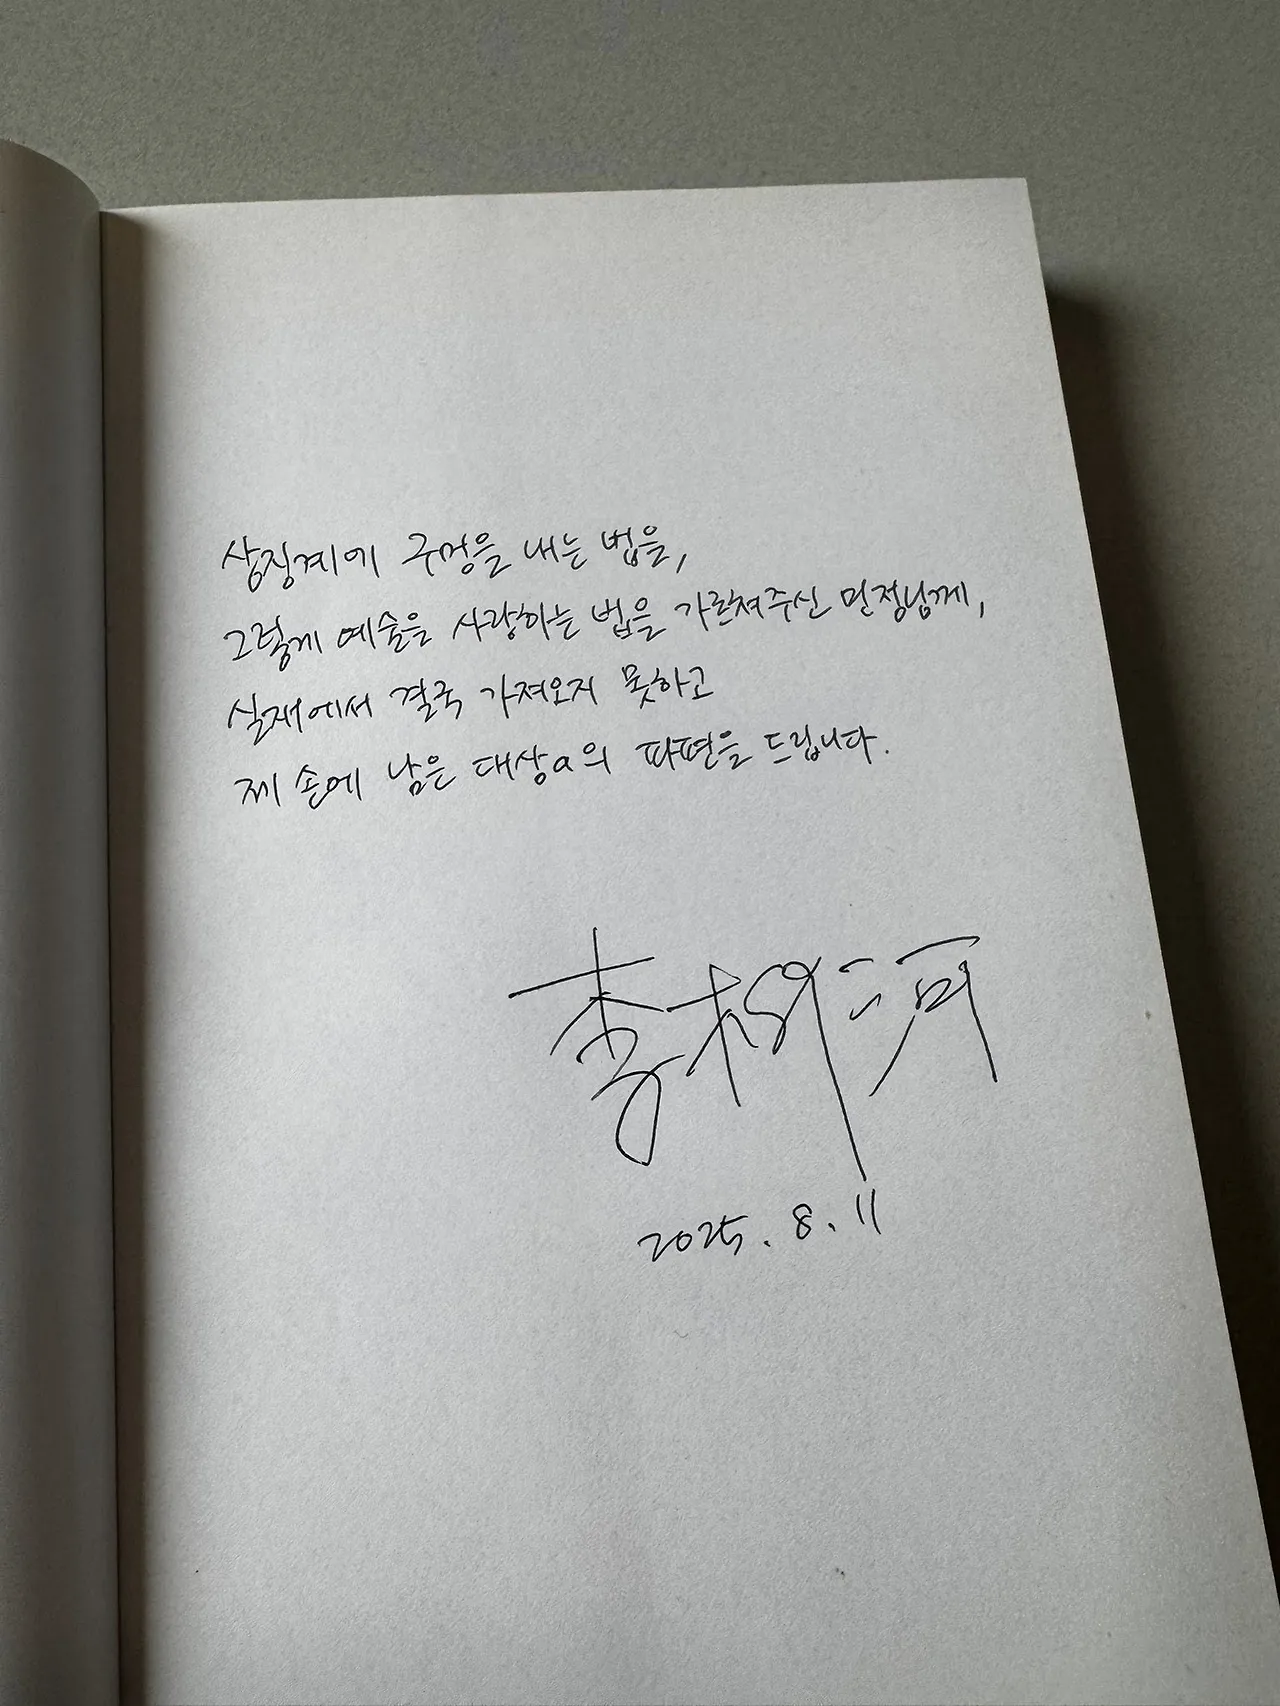 상징계에 구멍을 내는 법을,
그렇게 예술을 사랑하는 법을 가르쳐주신 민정님께,
실재에서 결국 가져오지 못하고
제 손에 남은 대상a의 파편을 드립니다.
李 河
2025. 8. 11